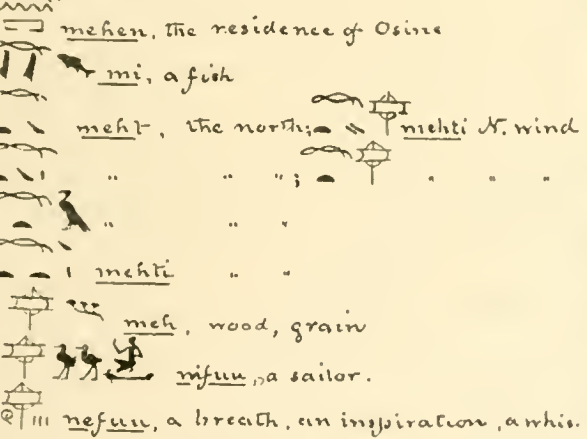 mehen, the residence of Osine
mi, a fish
meht, the north; mehti N. wind
" " "; " " "
" " "
mehti " "
meh, wood, grain
nifuu, a sailor.
nefuu, a breath, an inspiration, a whis.